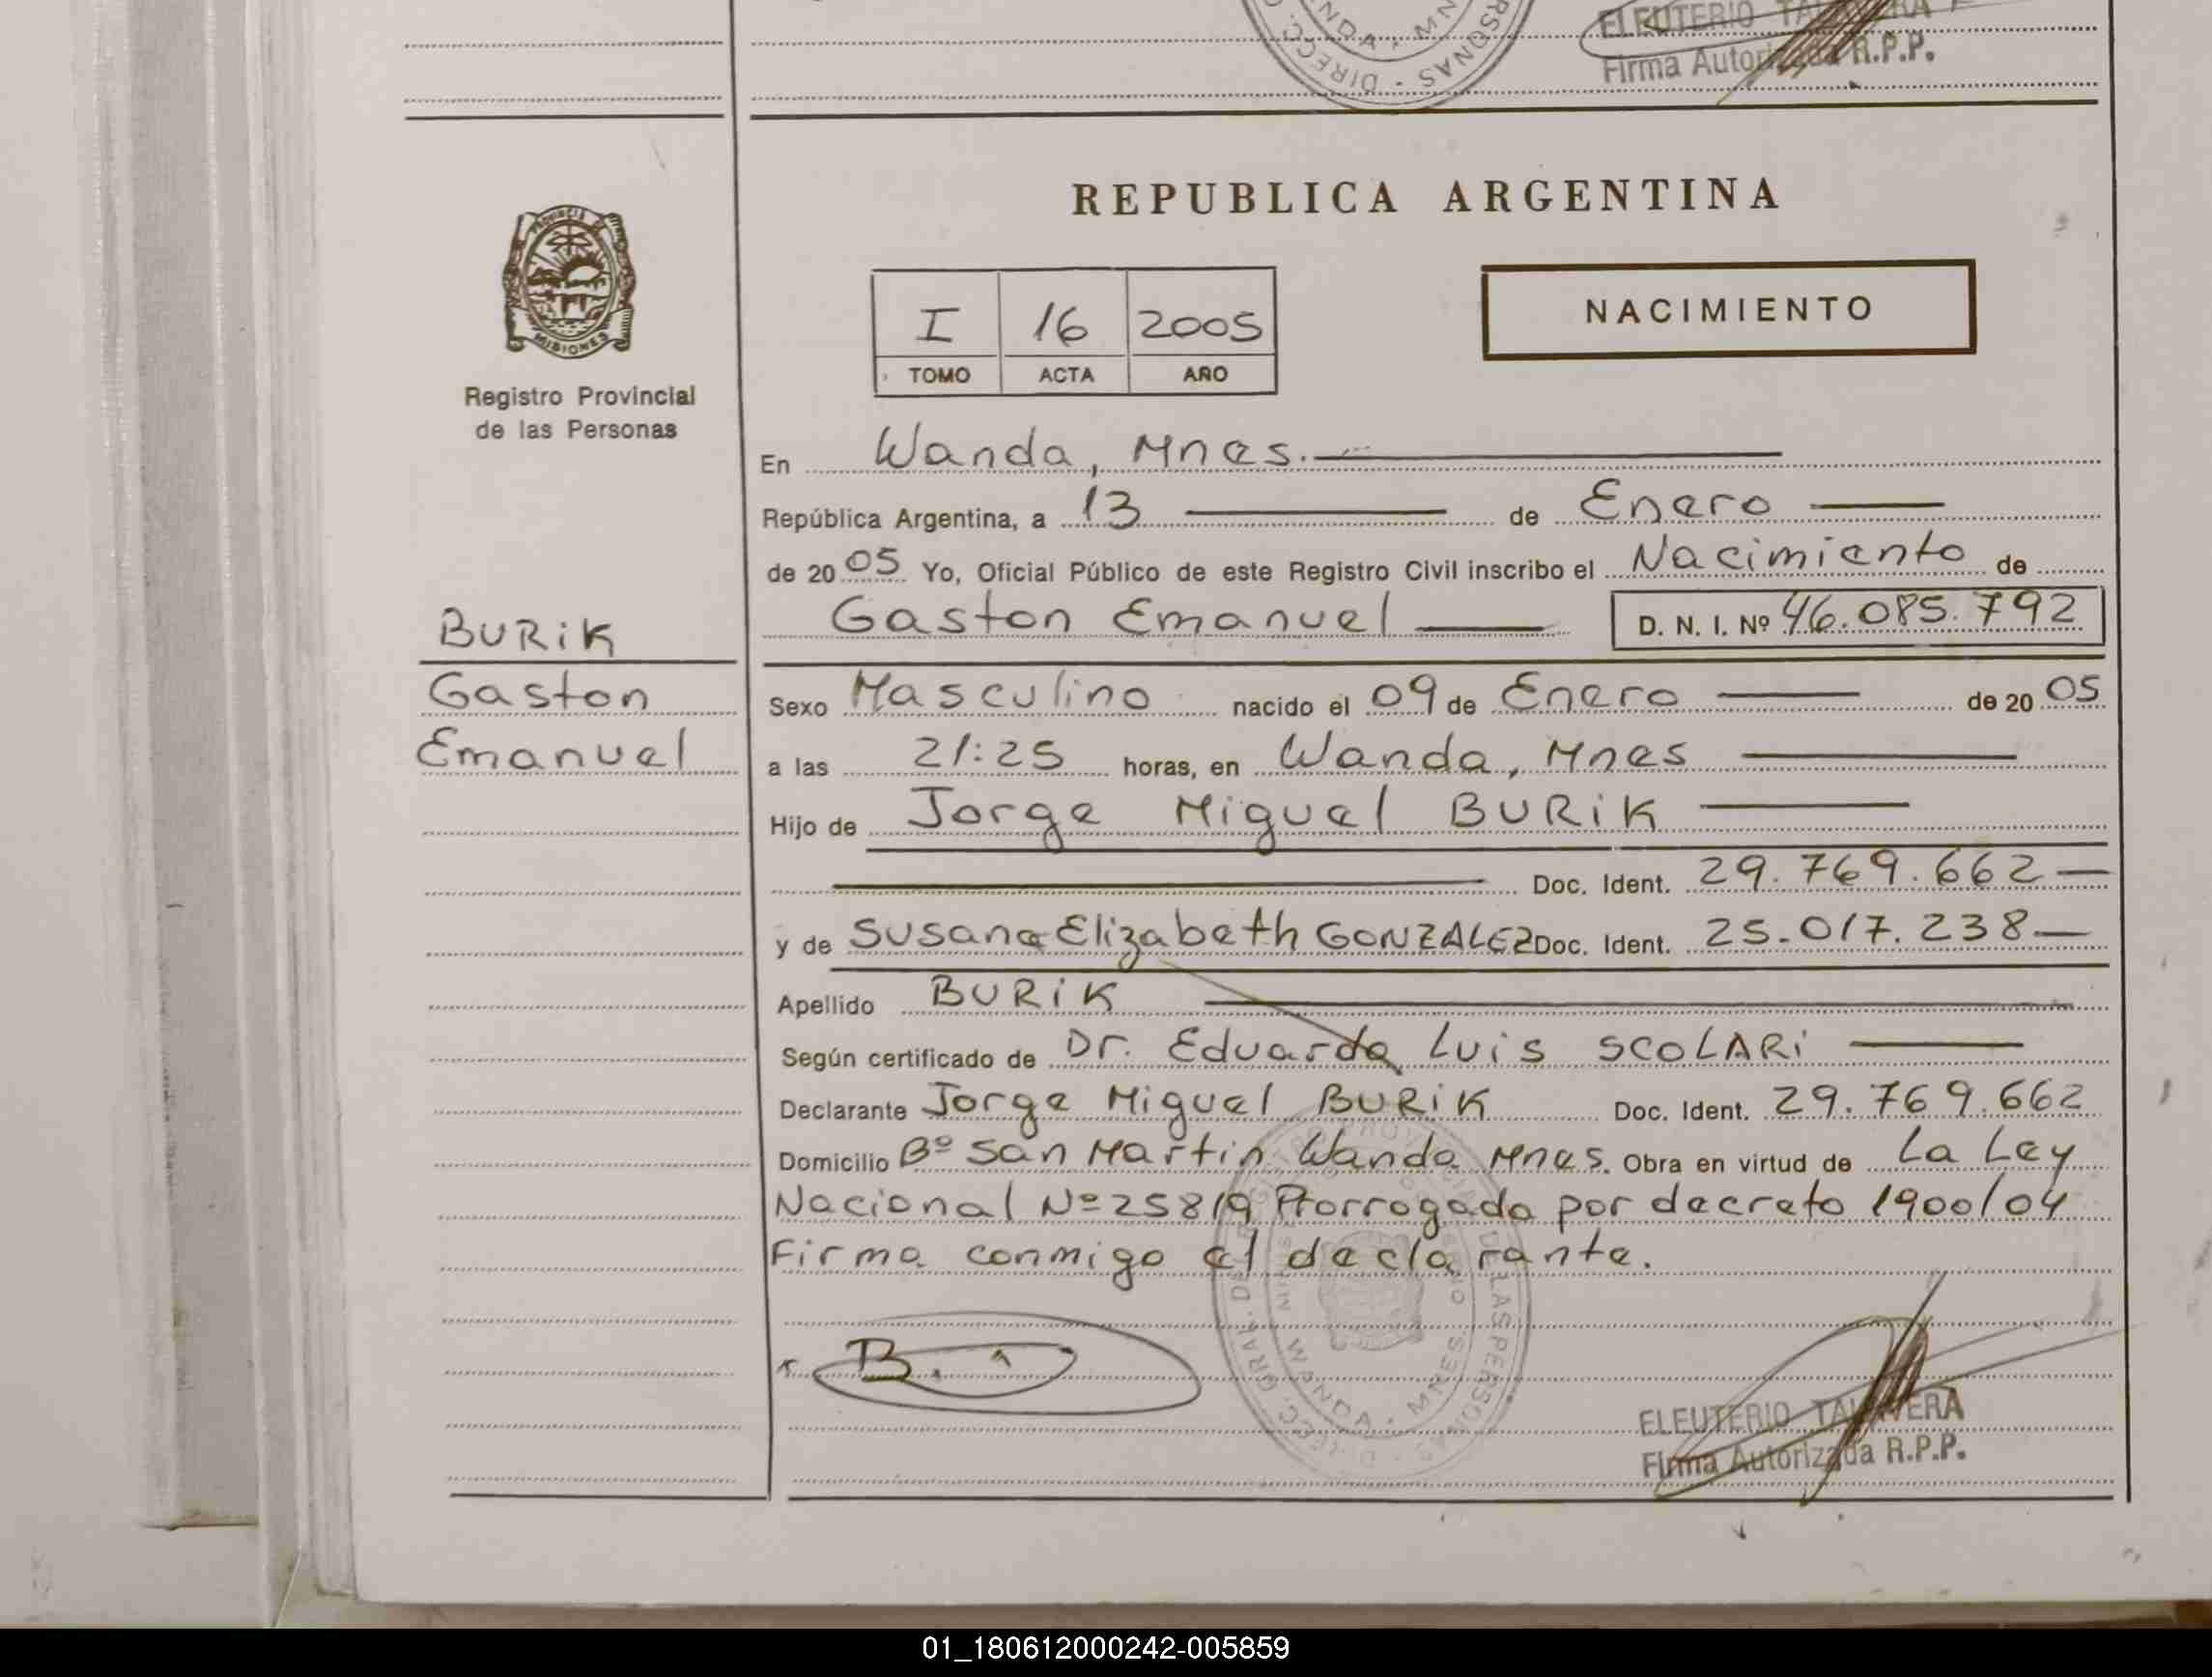 ELEUTERIO TALAVERA
Firma Autorizada R.P.P.
DIRECC.
WANDA - MNES.
PERSONAS
REPUBLICA ARGENTINA
PROVINCIA
MISIONES
Registro Provincial
de las Personas
I 16 2005
TOMO ACTA AÑO
NACIMIENTO
En Wanda, Mnes.
República Argentina, a 13 de Enero
de 2005 Yo, Oficial Público de este Registro Civil inscribo el Nacimiento de
Gaston Emanuel D. N. I. Nº 46.085.792
BURiK
Gaston
Emanuel
Sexo Masculino nacido el 09 de Enero de 2005
a las 21:25 horas, en Wanda, Mnes
Hijo de Jorge Miguel BURiK
Doc. Ident. 29.769.662
y de Susana Elizabeth GONZALEZ Doc. Ident. 25.017.238
Apellido BURiK
Según certificado de Dr. Eduardo Luis SCOLARi
Declarante Jorge Miguel BURiK Doc. Ident. 29.769.662
Domicilio Bº San Martin Wanda Mnes. Obra en virtud de La Ley
Nacional Nº 25819 Prorrogada por decreto 1900/04
Firma conmigo el declarante.
WANDA - MNES.
DE LAS PERSONAS
ELEUTERIO TALAVERA
Firma Autorizada R.P.P.
01_180612000242-005859